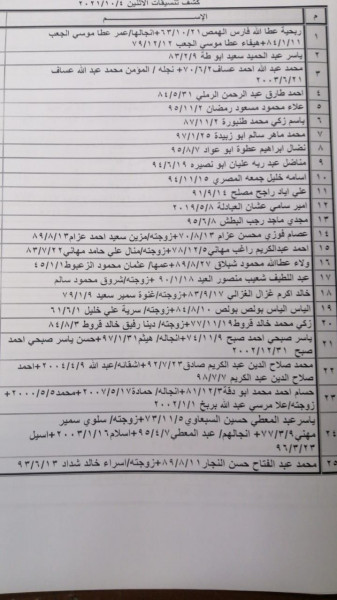 كشف تنسيقات الاثنين ٢٠٢١/١٠/٤
م الإســـم
١ ربحية عطا الله فارس الهمص ٦٣/١٠/٢١+انجالها/عمر عطا موسي الجعب
٨٤/١/١١+هيفاء عطا موسي الجعب ٧٩/١٢/١٢
٢ ياسر عبد الحميد سعيد ابو طة ٨٣/٢/٩
٣ محمد عبد الله احمد عساف ٧٠/٦/٢+ نجله / المؤمن محمد عبد الله عساف
٢٠٠٣/٦/٢١
٤ احمد طارق عبد الرحمن الرملي ٨٤/٥/٣١
٥ علاء محمود مسعود رمضان ٩٥/١١/٢
٦ باسم زكي محمد طنبورة ٨٧/١١/٢
٧ محمد ماهر سالم ابو زبيدة ٩٧/١/٢٥
٨ نضال ابراهيم عطوة ابو عواد ٩٥/٨/٧
٩ مناضل عبد ربه عليان ابو نصيره ٩٤/٦/١٩
١٠ اسامه خليل جمعه المصري ٩٤/١١/١٥
١١ علي اياد راجح مصلح ٩١/٩/١٤
١٢ امير سامي عشان العبادلة ٢٠١٩/٥/٨
١٣ مجدي ماجد رجب البطش ٩٥/٦/٨
١٤ عصام فوزي محسن عزام ٧٠/٨/١٣+زوجته/مزين سعيد احمد عزام ٨٩/٨/١٣
١٥ احمد عبدالكريم راغب مهاني ٧٨/١٢/٥+زوجته/منال علي حامد مهاني ٨٣/٧/٢٢
١٦ ولاء عطاالله محمود شبلاق ٨٩/٨/٢٧+عمها/ عثمان محمود الزعبوط ٤٥/١/١
١٧ عبد اللطيف شعيب منصور العبد ٩٠/١/١٨+زوجته/شروق محمود سالم
١٨ خالد اكرم غزال الغزالي ٨٣/٩/١٧+زوجته/غنوة سمير سعيد ٧٩/١/٩
١٩ الياس الياس بولص بولص ٨٤/٨/١٠+زوجته/ سرية علي خليل ٦١/٦/١
٢٠ زكي محمد خالد قروط ٧٧/١١/١٩+زوجته/ دينا رفيق خالد قروط ٨٤/٨/٣
٢١ ياسر صبحي احمد صبح ٧٤/١١/٩+انجاله/ هيثم ٩٧/١/٣١+حسن ياسر صبحي احمد
صبح ٢٠٠٢/١٢/٣١
٢٢ محمد صلاح الدين عبد الكريم صادق ٩٢/٧/٢٣+اشقائه/عبد الله ٢٠٠٤/٤/٩+احمد
صلاح الدين عبد الكريم ٩٨/٧/٧
٢٣ حسام احمد محمد ابو دقة ٨١/١٢/٣+انجاله/ حمادة ٢٠٠٧/٥/١٧+محمد ٢٠٠٠/٥/٥+
زوجته/علا مرسي عبد الله بربخ ٢٠٠٢/١/١
٢٤ ياسر عبد المعطي حسين السبعاوي ٧٣/١١/٥+زوجته/ سلوي سمير
مهني ٧٧/٣/٩+ انجالهم/ عبد المعطي ٩٥/٤/٧+اسلام ٢٠٠٣/١/١٦+اسيل
٩٦/٣/٢٣
٢٥ محمد عبد الفتاح حسن النجار ٨٩/٨/١١+زوجته/اسراء خالد شداد ٩٣/٦/١٣